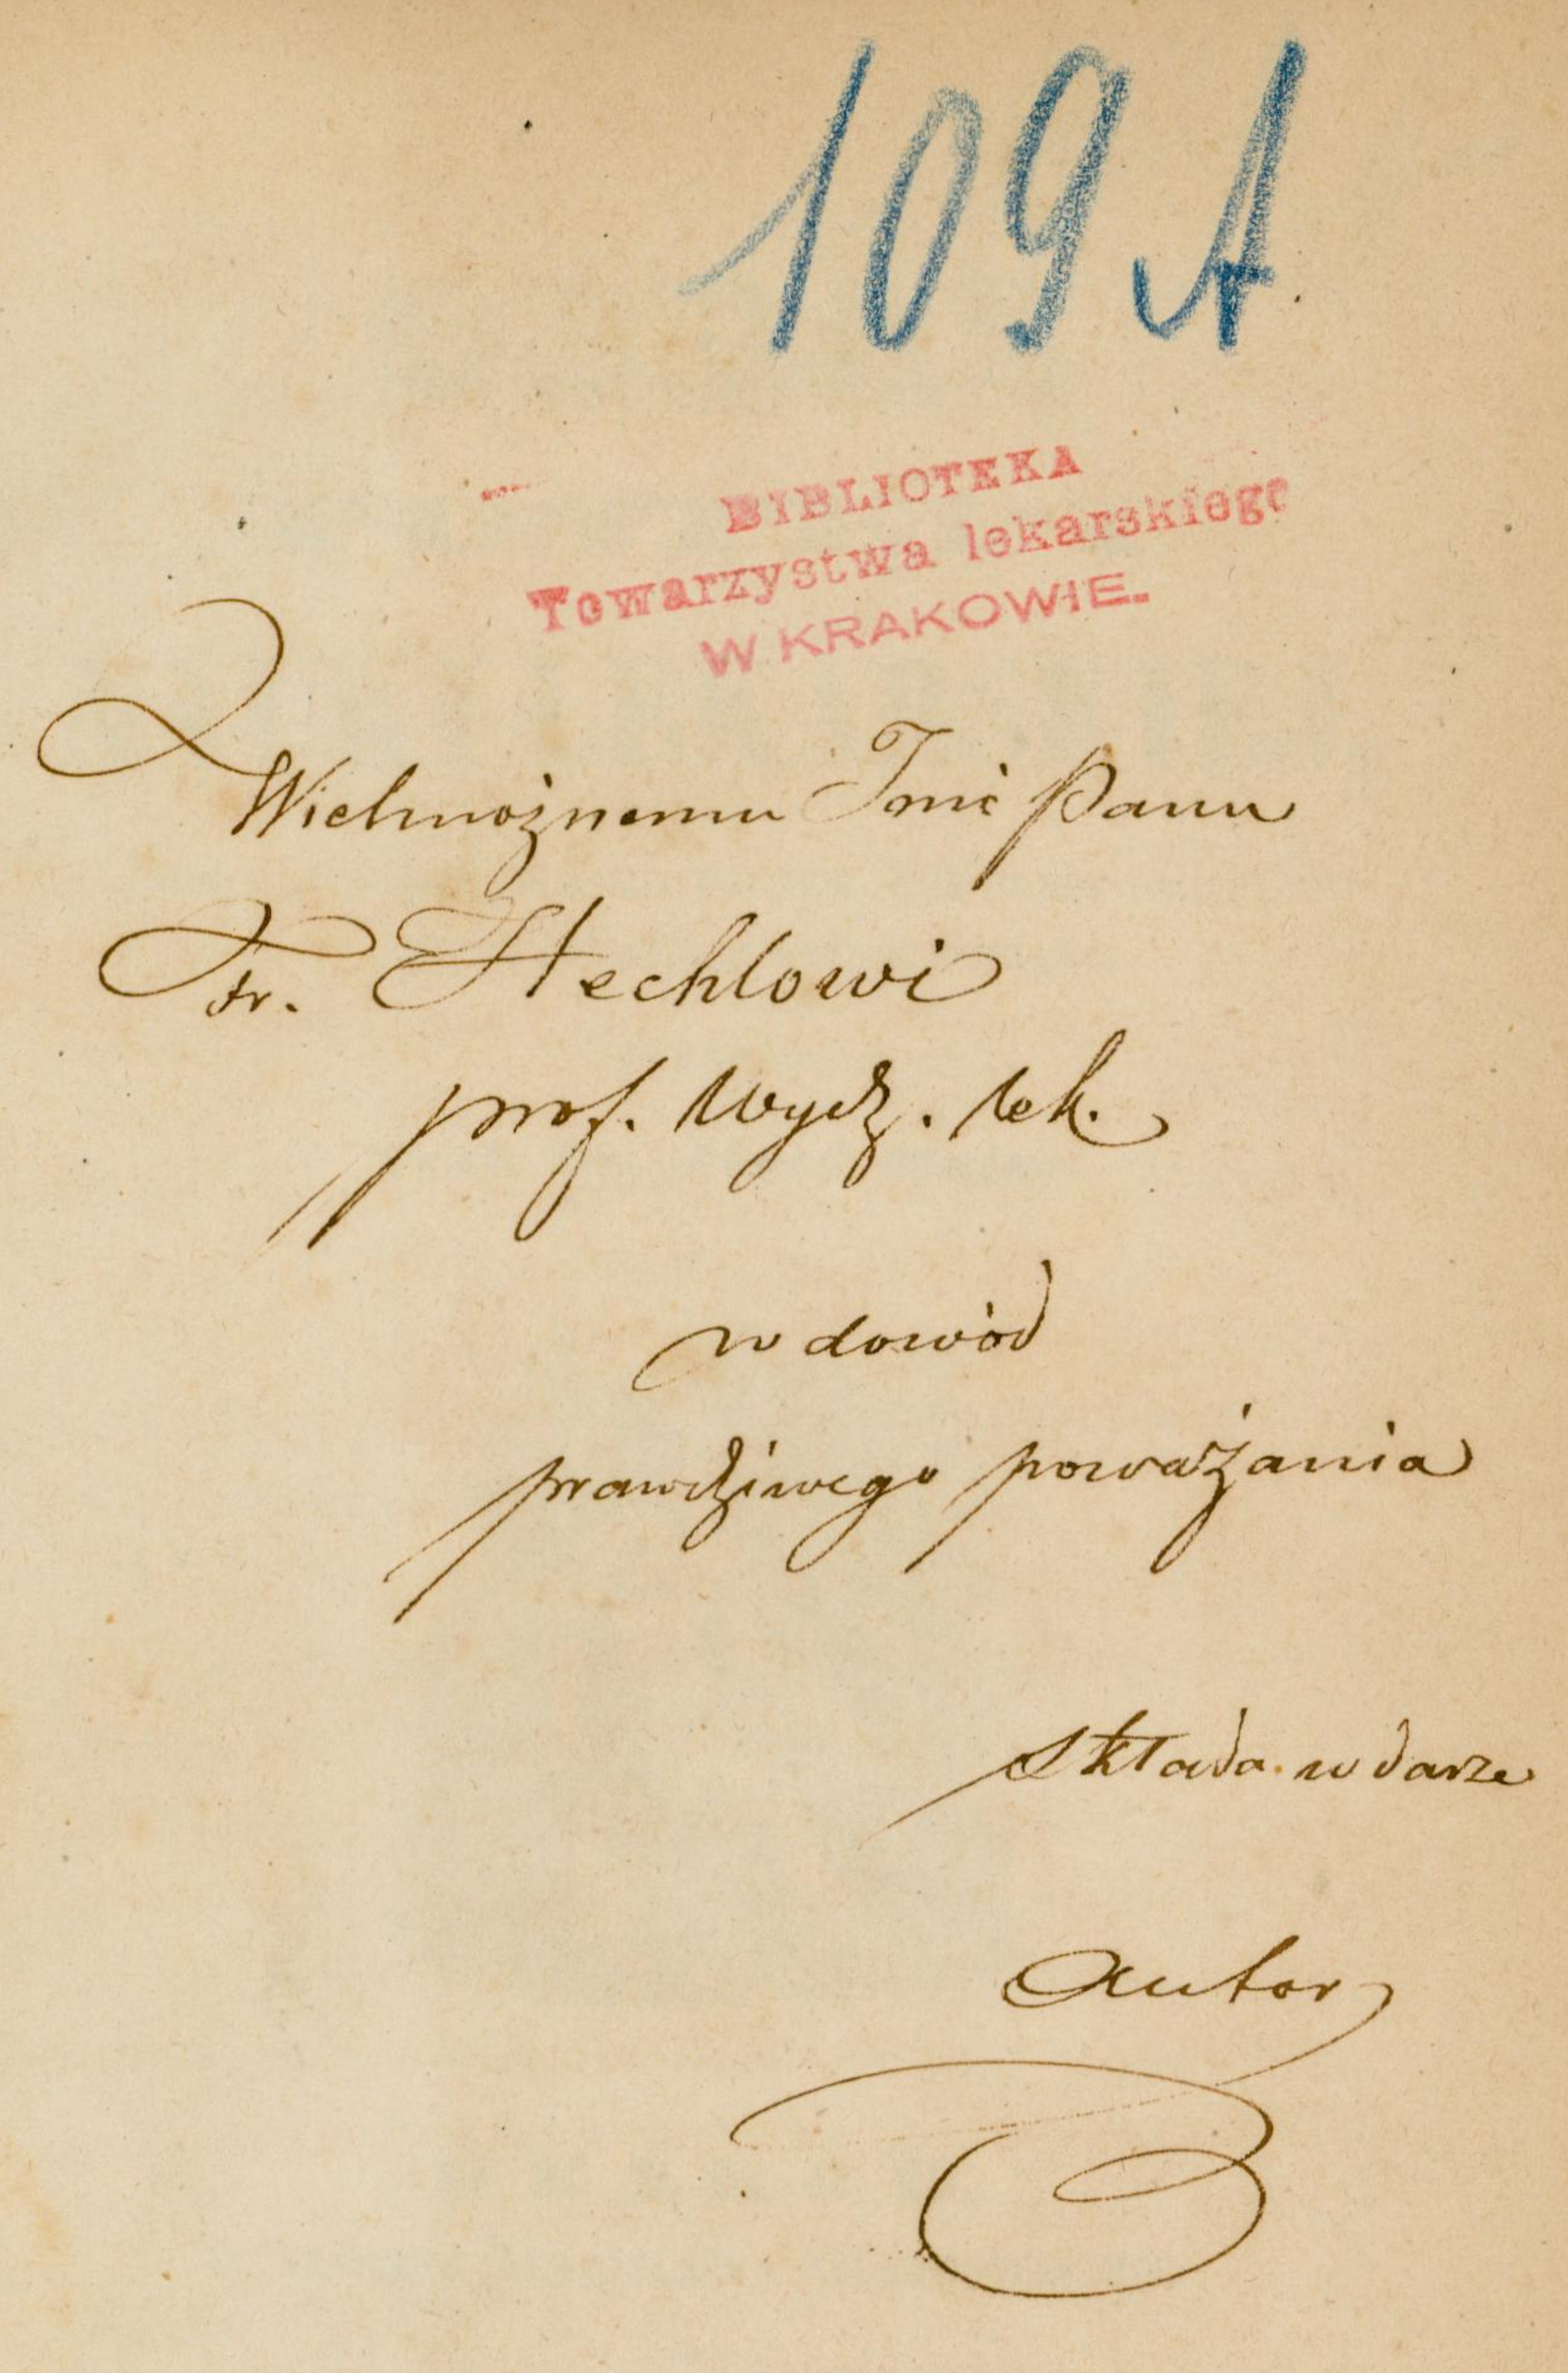 109 A
BIBLIOTEKA
Towarzystwa lekarskiego
W KRAKOWIE.
Wielmożnemu Jmć Panu
Fr. Hechlowi
prof. wydz. lek.
w dowód
prawdziwego poważania
składa w darze
Autor